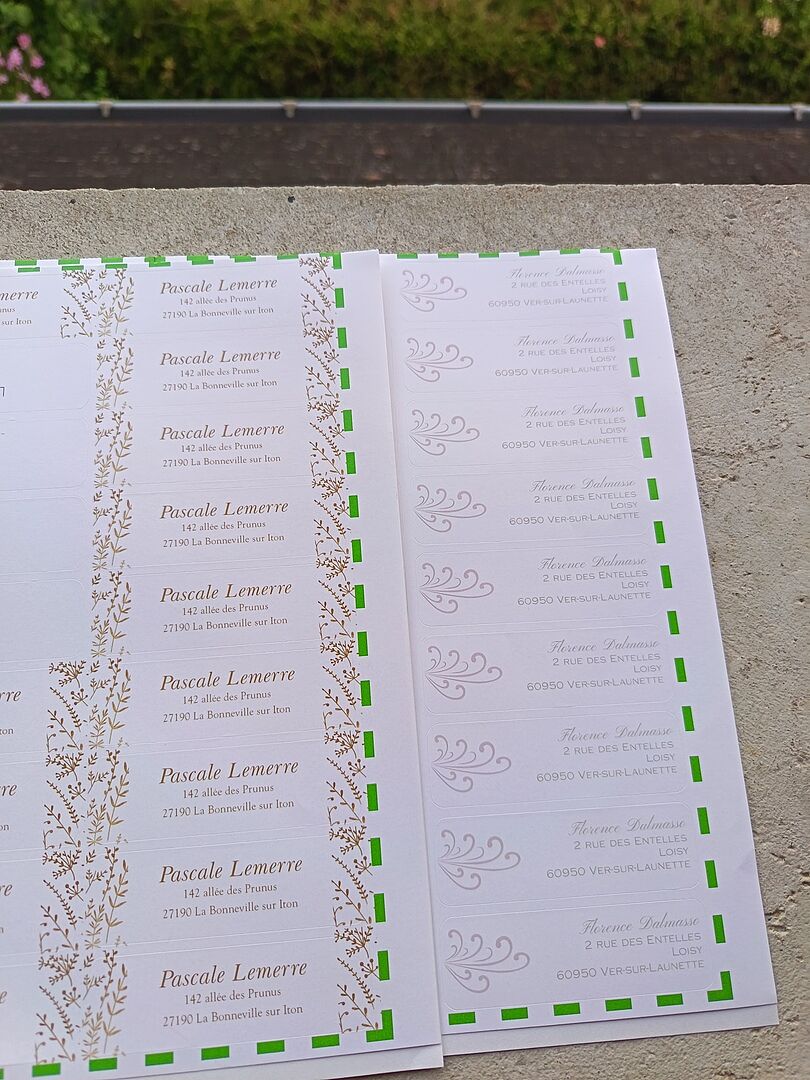 emerre
Pascale Lemerre
142 allée des Prunus
27190 La Bonneville sur Iton
sur Iton
Pascale Lemerre
142 allée des Prunus
27190 La Bonneville sur Iton
Pascale Lemerre
142 allée des Prunus
27190 La Bonneville sur Iton
Pascale Lemerre
142 allée des Prunus
27190 La Bonneville sur Iton
Pascale Lemerre
142 allée des Prunus
27190 La Bonneville sur Iton
Pascale Lemerre
142 allée des Prunus
27190 La Bonneville sur Iton
Pascale Lemerre
142 allée des Prunus
27190 La Bonneville sur Iton
Pascale Lemerre
142 allée des Prunus
27190 La Bonneville sur Iton
Pascale Lemerre
142 allée des Prunus
27190 La Bonneville sur Iton
Florence Dalmasso
2 rue des Entelles
Loisy
60950 Ver-sur-Launette
Florence Dalmasso
2 rue des Entelles
Loisy
60950 Ver-sur-Launette
Florence Dalmasso
2 rue des Entelles
Loisy
60950 Ver-sur-Launette
Florence Dalmasso
2 rue des Entelles
Loisy
60950 Ver-sur-Launette
Florence Dalmasso
2 rue des Entelles
Loisy
60950 Ver-sur-Launette
Florence Dalmasso
2 rue des Entelles
Loisy
60950 Ver-sur-Launette
Florence Dalmasso
2 rue des Entelles
Loisy
60950 Ver-sur-Launette
Florence Dalmasso
2 rue des Entelles
Loisy
60950 Ver-sur-Launette
Florence Dalmasso
2 rue des Entelles
Loisy
60950 Ver-sur-Launette